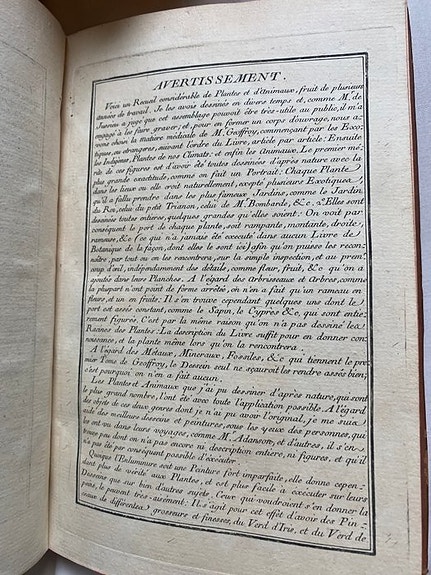 AVERTISSEMENT.
Voici un Recueil considérable de Plantes et d'Animaux, fruit de plusieurs
années de travail. Je les avois dessinés en divers temps et, comme M. de
Jussieu a jugé que cet assemblage pouvoit être très-utile au public, il m'a
engagé à les faire graver; et, pour en former un corps d'ouvrage, nous a-
vons choisi la matière médicale de M. Geoffroy, commençant par les Exo-
tiques ou étrangeres, suivant l'ordre du Livre, article par article: Ensuite
les Indigènes, Plantes de nos Climats: et enfin les Animaux. Le premier mé-
rite de ces figures est d'avoir été toutes dessinées d'après nature avec la
plus grande exactitude, comme on fait un Portrait: Chaque Plante
dans les lieux ou elle croit naturellement, excepté plusieurs Exotiques,
qu'il a fallu prendre dans les plus fameux Jardins, comme le Jardin
du Roi, celui du petit Trianon, celui de M. Bombarde, &c. 2.° Elles sont
dessinées toutes entieres, quelques grandes qu'elles soient: On voit par
conséquent le port de chaque plante, soit rampante, montante, droite,
rameuse, &c (ce qui n'a jamais été executé dans aucun Livre de
Botanique de la façon, dont elles le sont ici) afin qu'on puisse les recon-
noître, par tout ou on les rencontrera, sur la simple inspection, et au premier
coup d'œil, indépendamment des détails, comme fleur, fruit, &c qu'on a
ajoutés dans leurs Planches. A l'égard des Arbrisseaux et Arbres, comme
la plupart n'ont point de forme arrêtée, on n'en a fait qu'un rameau en
fleurs, et un en fruits: Il s'en trouve cependant quelques uns dont le
port est assés constant, comme le Sapin, le Cyprès &c, qui sont entie-
rement figurés. C'est par la même raison qu'on n'a pas dessiné les
Raçines des Plantes: La description du Livre suffit pour en donner con-
noissance, et la plante même lors qu'on la rencontrera.
A l'égard des Métaux, Mineraux, Fossiles, &c qui tiennent le pre-
mier Tome de Geoffroy, le Dessein seul ne sçauroit les rendre assés bien;
c'est pourquoi on n'en a fait aucun.
Les Plantes et Animaux que j'ai pu dessiner d'après nature, qui sont
le plus grand nombre, l'ont été avec toute l'application possible. A l'égard
des objets de ces deux genres dont je n'ai pu avoir l'original, je me suis
aidé des meilleurs desseins et peintures, sous les yeux des personnes, qui
les ont vu dans leurs voyages, comme M. Adanson, et d'autres, il s'en
trouve peu dont on n'a pas encore ni description entiere, ni figures, et qu'il
n'a pas été par conséquent possible d'exécuter.
Quoique l'Enluminure soit une Peinture fort imparfaite, elle donne cepen-
dant plus de vérité aux Plantes, et est plus facile à exécuter sur leurs
Desseins que sur bien d'autres sujets. Ceux qui voudroient s'en donner la
peine, le peuvent très-aisément: Il s'agit pour cet effet d'avoir des Pin-
ceaux de differentes grosseurs et finesses, du Verd d'Iris, et du Verd de